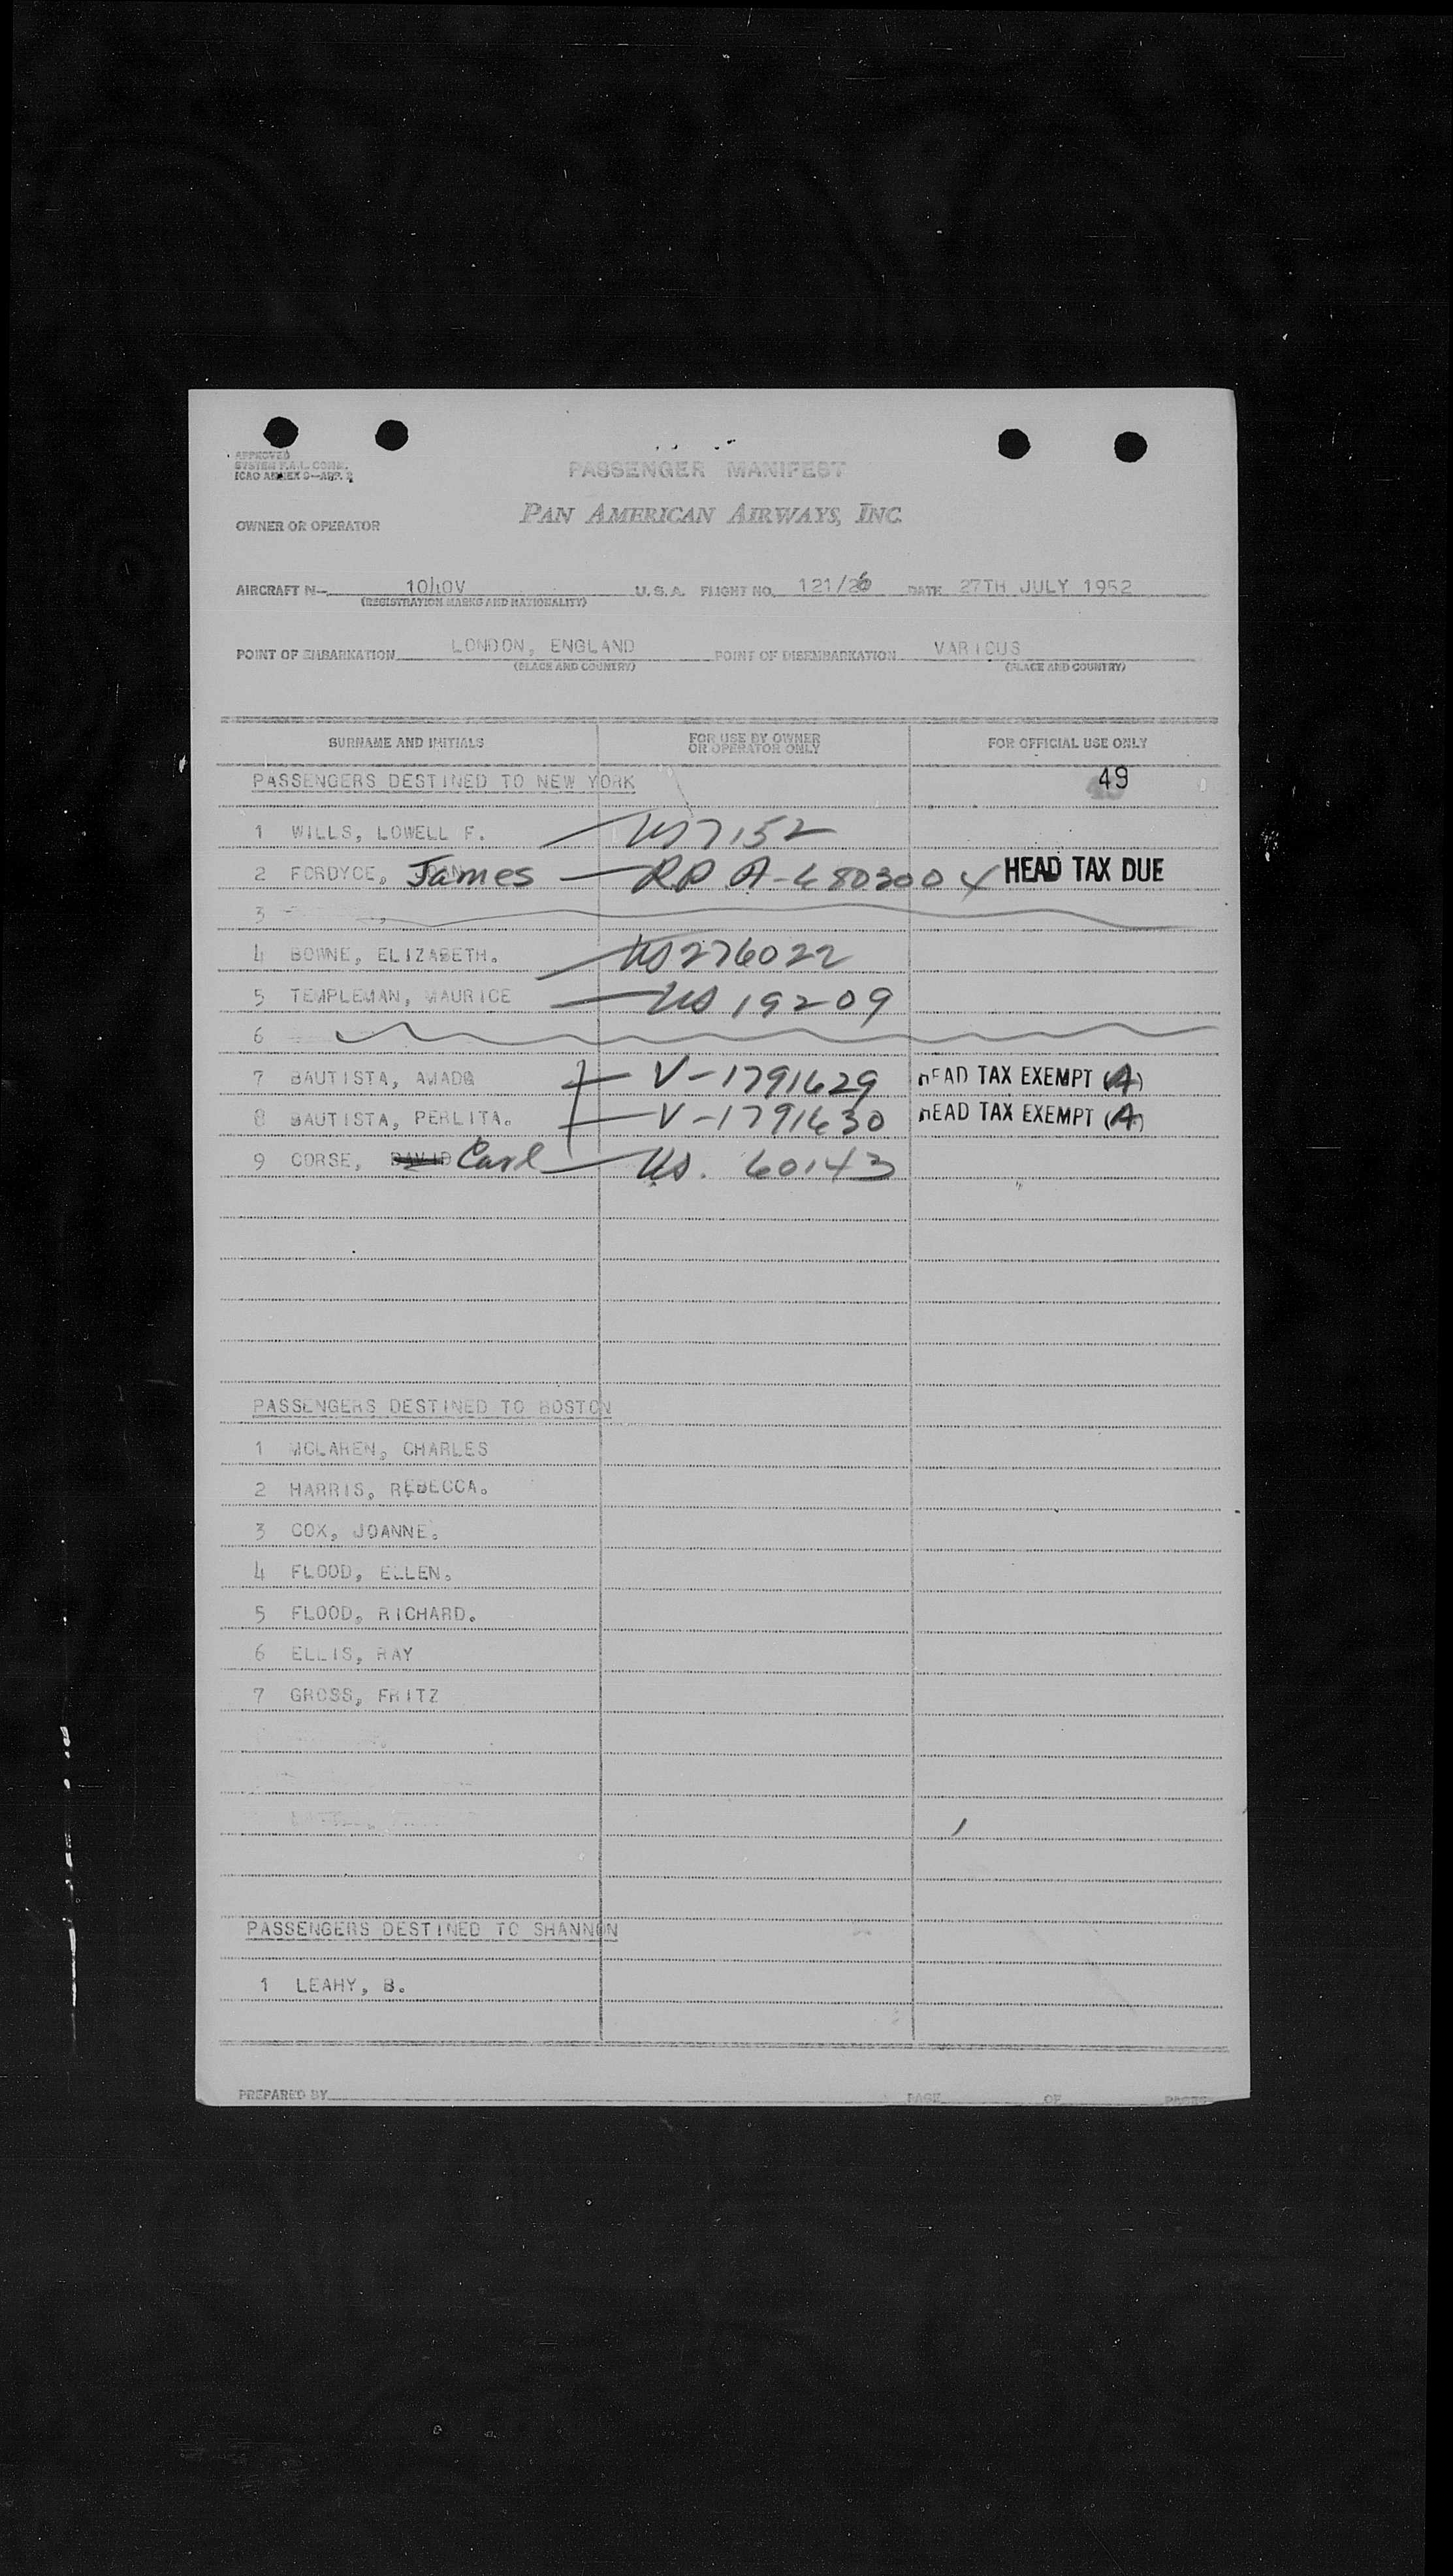 APPROVED
SYSTEM F.A.L. COMM.
ICAO ANNEX 9—APP. 2
PASSENGER MANIFEST
PAN AMERICAN AIRWAYS, INC.
OWNER OR OPERATOR
AIRCRAFT N- 1040V U.S.A. FLIGHT NO. 121/26 DATE 27TH JULY 1952
(REGISTRATION MARKS AND NATIONALITY)
POINT OF EMBARKATION LONDON, ENGLAND POINT OF DISEMBARKATION VARIOUS
(PLACE AND COUNTRY) (PLACE AND COUNTRY)
SURNAME AND INITIALS FOR USE BY OWNER OR OPERATOR ONLY FOR OFFICIAL USE ONLY
PASSENGERS DESTINED TO NEW YORK 49
1 WILLS, LOWELL F. US 7152
2 FORDYCE, James RP A-6803004 HEAD TAX DUE
3
4 BOWNE, ELIZABETH. US 276022
5 TEMPLEMAN, MAURICE US 19209
6
7 BAUTISTA, AMADO V-1791629 HEAD TAX EXEMPT (A)
8 BAUTISTA, PERLITA. V-1791630 HEAD TAX EXEMPT (A)
9 CORSE, DAVID Carl US. 60143
PASSENGERS DESTINED TO BOSTON
1 MCLAREN, CHARLES
2 HARRIS, REBECCA.
3 COX, JOANNE.
4 FLOOD, ELLEN.
5 FLOOD, RICHARD.
6 ELLIS, RAY
7 GROSS, FRITZ
PASSENGERS DESTINED TO SHANNON
1 LEAHY, B.
PREPARED BY PAGE OF PAGES